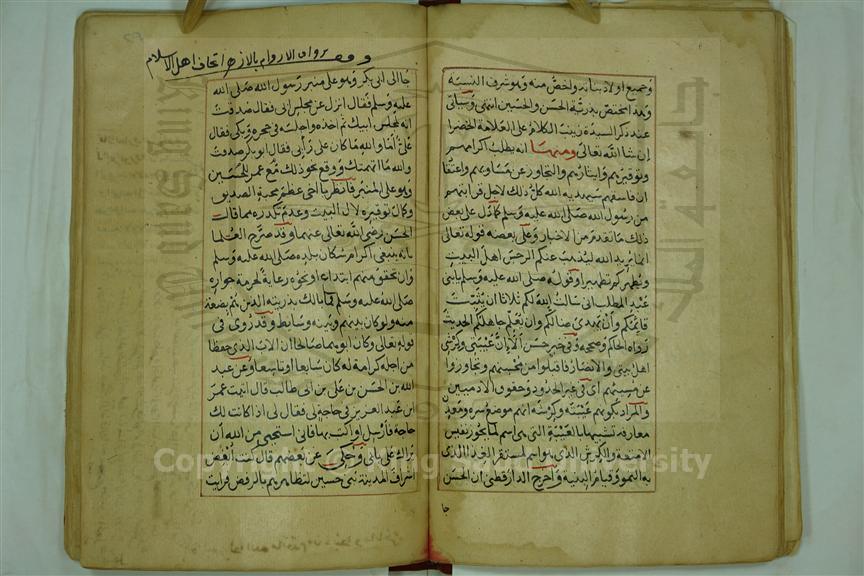 وجميع اولاد بناته واخص منه وهو شرف النسبة
وهذا مختص بذرية الحسن والحسين انتهى وسياتى
عند ذكر السيدة زينب الكلام على العلامة الخضرا
ان شا الله تعالى ومنها انه يطلب اكرامهم
وتوقيرهم وايثارهم والتجاوز عن مساويهم واعتقاد
ان فاسقهم سيهديه الله كل ذلك لاجل قرابتهم
من رسول الله صلى الله عليه وسلم كما دل على بعض
ذلك ما تقدم من الاخبار وعلى بعضه قوله تعالى
انما يريد الله ليذهب عنكم الرجس اهل البيت
ويطهركم تطهيرا وقوله صلى الله عليه وسلم يا بنى
عبد المطلب انى سالت الله لكم ثلاثا ان يثبت
قائمكم وان يهدى ضالكم وان يعلم جاهلكم الحديث
رواه الحاكم وصححه وفى خبر حسن الا ان عيبتى وكرشى
اهل بيتى والانصار فاقبلوا من محسنهم وتجاوزوا
عن مسيئهم اى فى غير الحدود وحقوق الادميين
والمراد بكونهم عيبته وكرشه انهم موضع سره ومعدن
معارفه تشبيها بالعيبة التى هى اسم لما يحوز نفيس
الامتعة والكرش الذى هو اسم لمستقر الغذا الذى
به النمو وقيام البنية واخرج الدارقطنى ان الحسن
جا
وقف برواق الاروام بالازهر اتحاف اهل الاسلام
جا الى ابى بكر وهو على منبر رسول الله صلى الله
عليه وسلم فقال انزل عن مجلس ابى فقال صدقت
انه لمجلس ابيك ثم اخذه واجلسه فى حجره وبكى فقال
على اما والله ما كان على رأيى فقال ابو بكر صدقت
والله ما اتهمتك ووقع نحو ذلك مع عمر للحسين
وهو على المنبر فانظر يا اخى عظم محبة الصديق
وكمال توقيره لال البيت وعدم تكدره مما قال
الحسن رضى الله تعالى عنهما وقد صرح العلما
بانه ينبغى اكرام سكان بلده صلى الله عليه وسلم
وان تحقق منهم ابتداع او نحوه رعاية لحرمة جواره
صلى الله عليه وسلم فما بالك بذريته الذين هم بضعة
منه ولو كان بينهم وبينه وسايط وقد روى فى
قوله تعالى وكان ابوهما صالحا ان الاب الذى حفظا
من اجله كرامة له كان سابعا او تاسعا وعن عبد
الله بن الحسن بن على بن ابى طالب قال اتيت عمر
ابن عبد العزيز فى حاجة لى فقال لى اذا كانت لك
حاجة فارسل او اكتب بها فانى استحيى من الله ان
يراك على بابى وحكى عن بعضهم قال كنت ابغض
اشراف المدينة بنى حسين لتظاهرهم بالرفض فرايت
Copyright © King Saud University
King Saud U